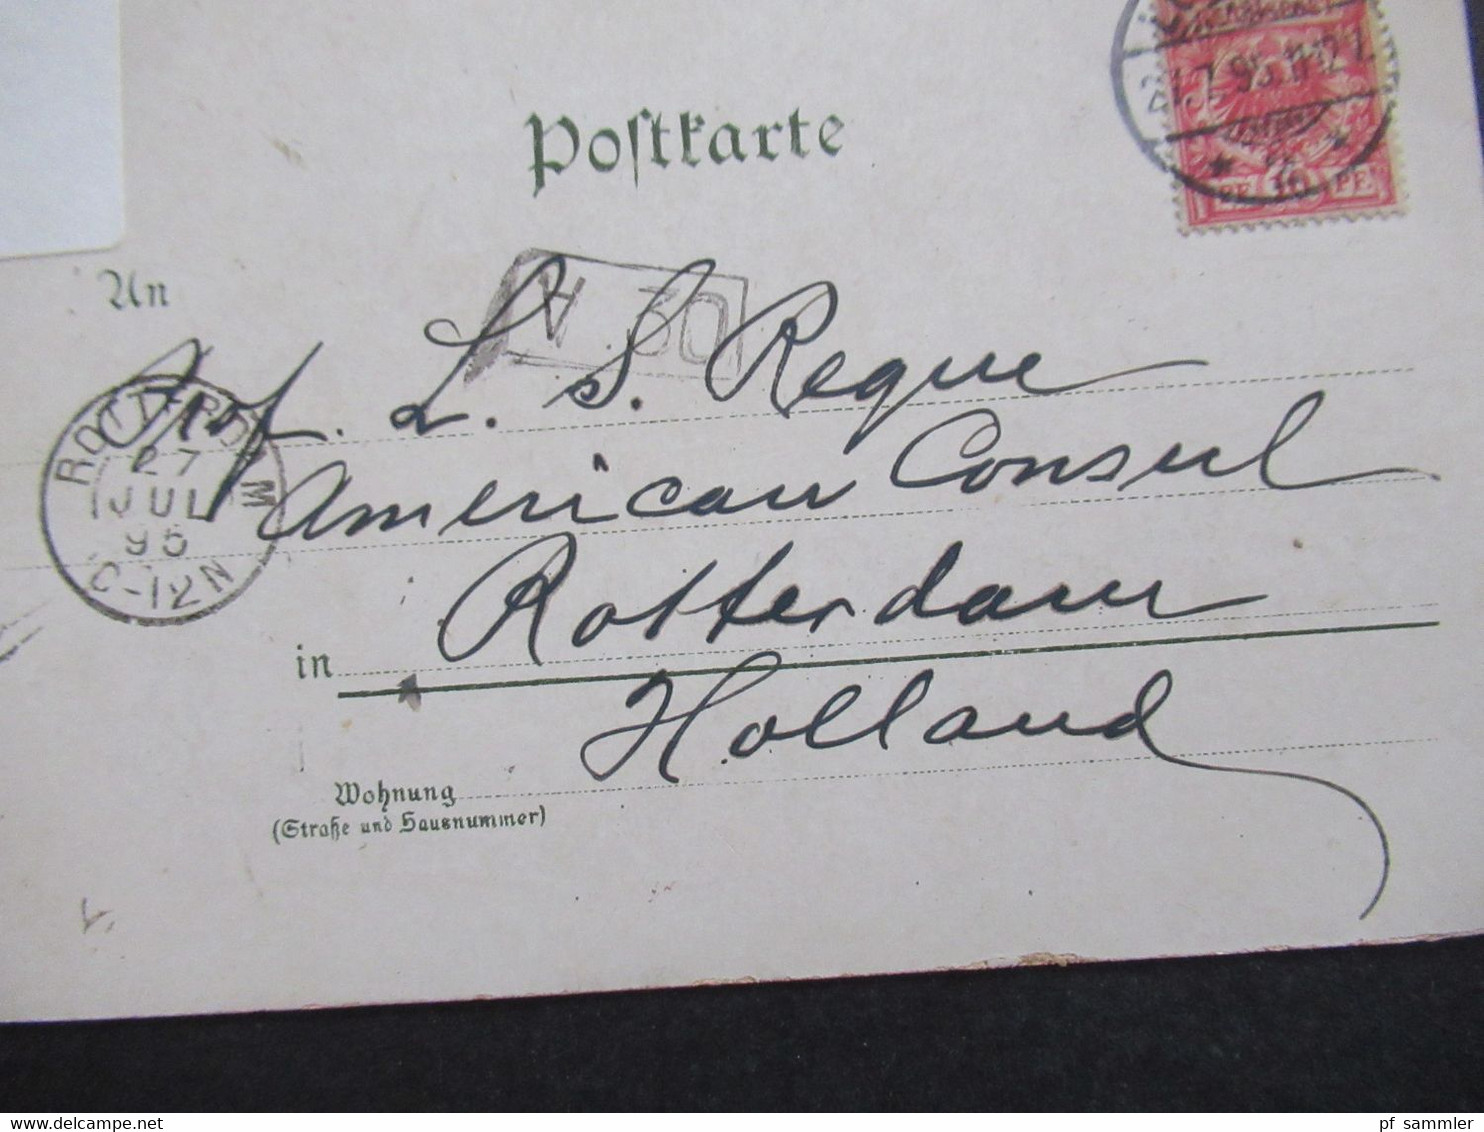 Postkarte
7.95.11-12V.
PF 10 PF
An
V 30
Prof. L. S. Reque
American Consul
in Rotterdam
Holland
ROTTERDAM
27
JUL
95
12N
Wohnung
(Straße und Hausnummer)
delcampe.net
pf_sammler